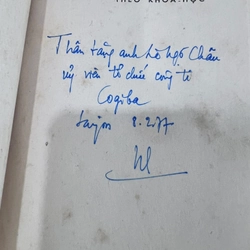 THEO KHOA-HỌC
Thân tặng anh Lò Ngô Châu
uỷ viên tổ chức công ti
Cogiba
Saigon 8.2.77